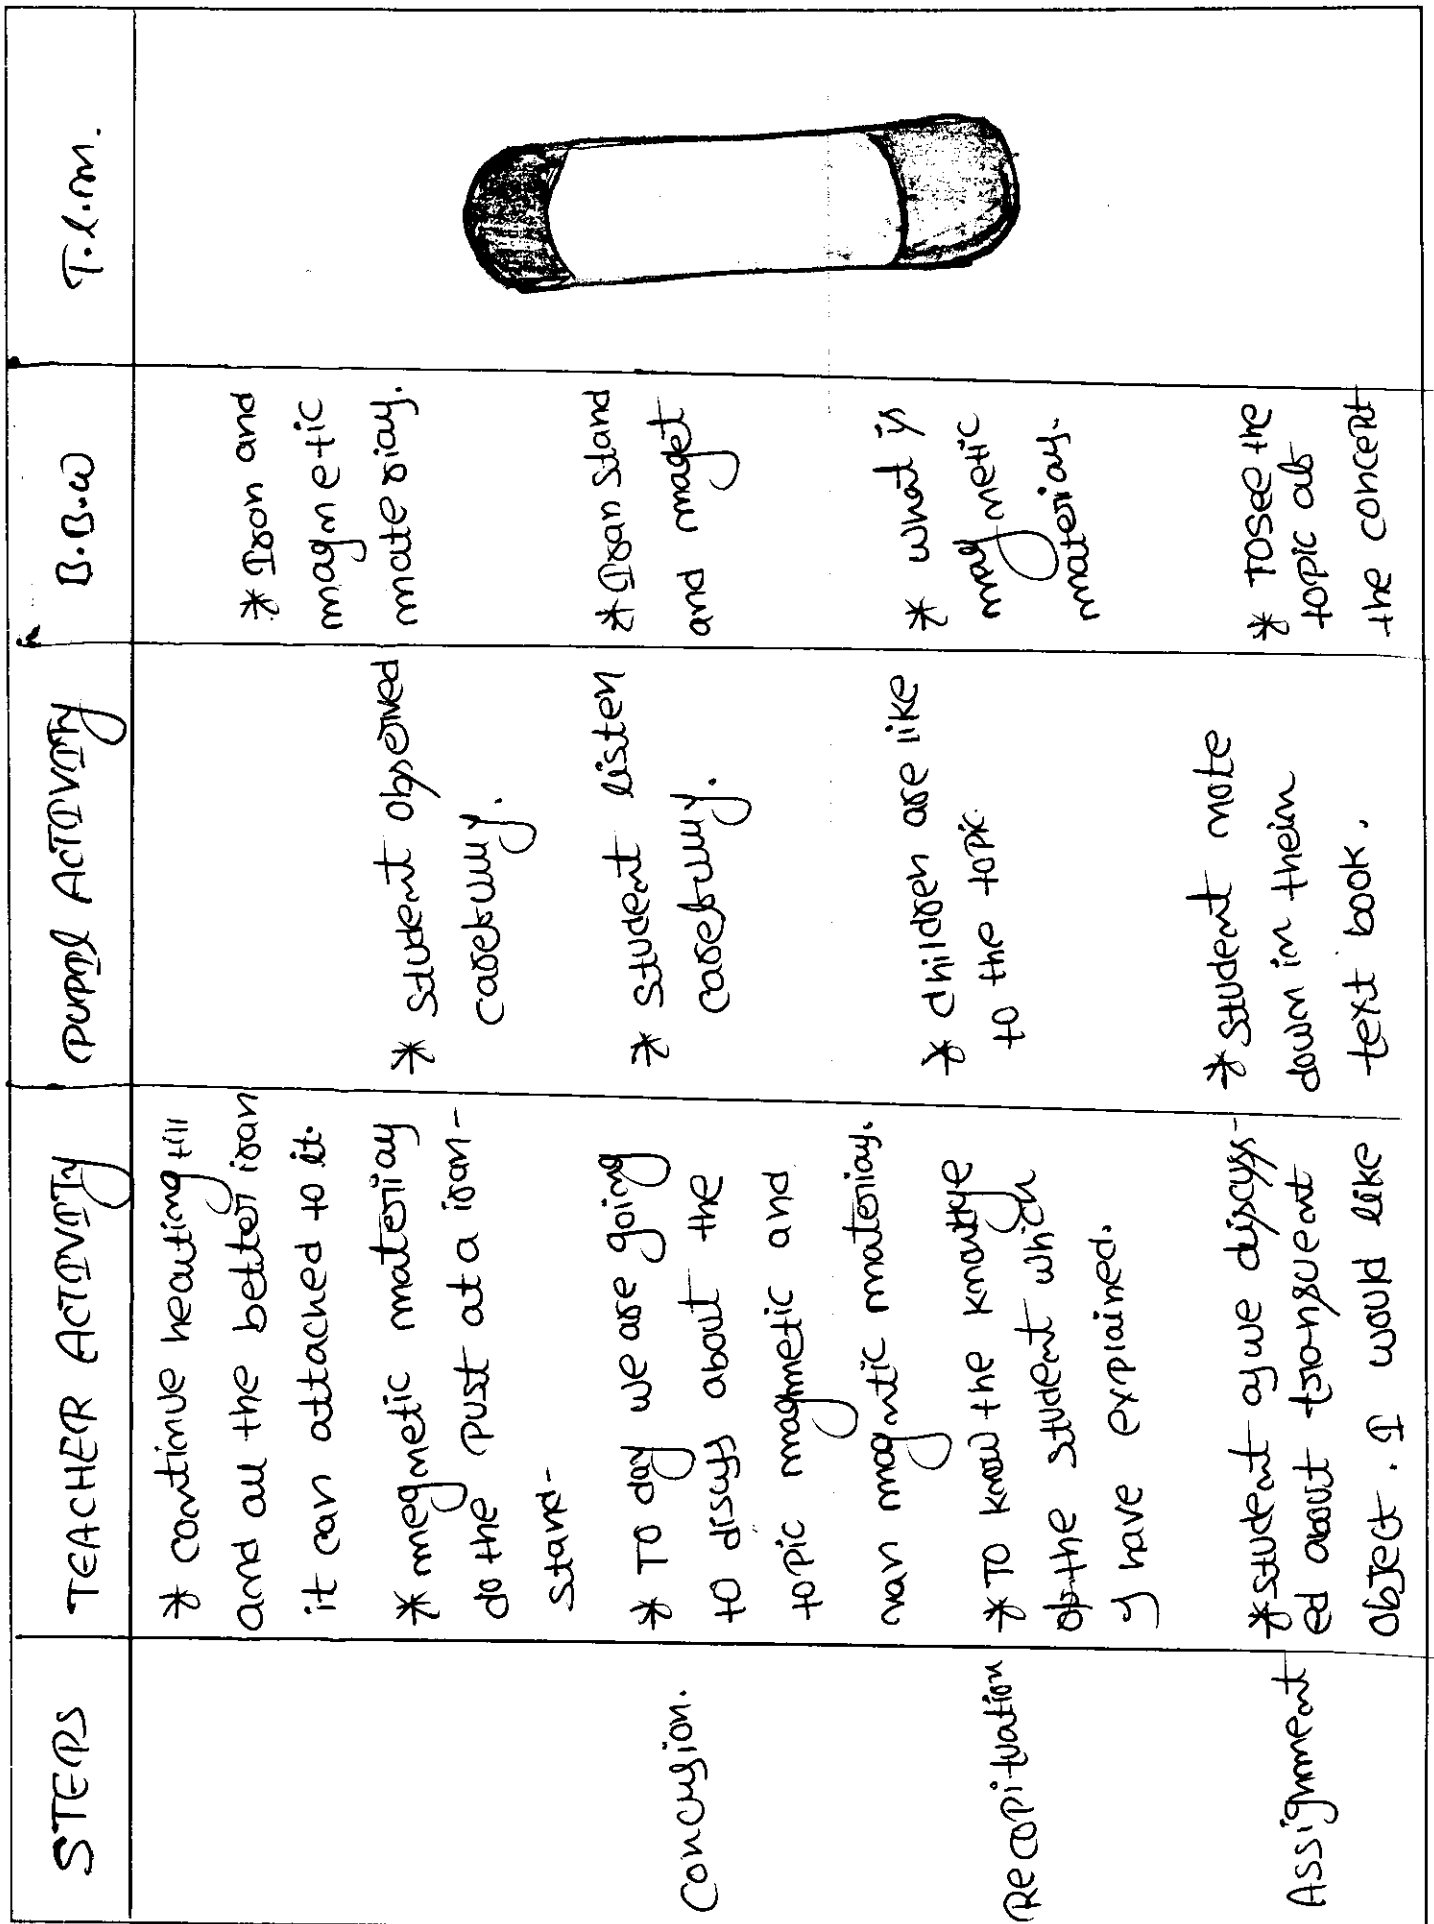 STEPS TEACHER ACTIVITY PUPIL ACTIVITY B.B.W T.L.M.
* continue heauting till
and all the better iron
it can attached to it.
* megnetic material
do the pust at a iron-
stand-
* Student observed
carefully.
* Iron and
magnetic
material.
Conclusion.
* To day we are going
to disuss about the
topic magnetic and
nan magntic material.
* Student listen
carefully.
* Iron Stand
and maget
Recapituation
* To know the knowttge
of the student which
I have explained.
* children are like
to the topic.
* what is
magmetic
material.
Assignment
* student as we discuss-
ed about
object. I would like
* Student note
down in their
text book.
* TO See the
topic
the concept